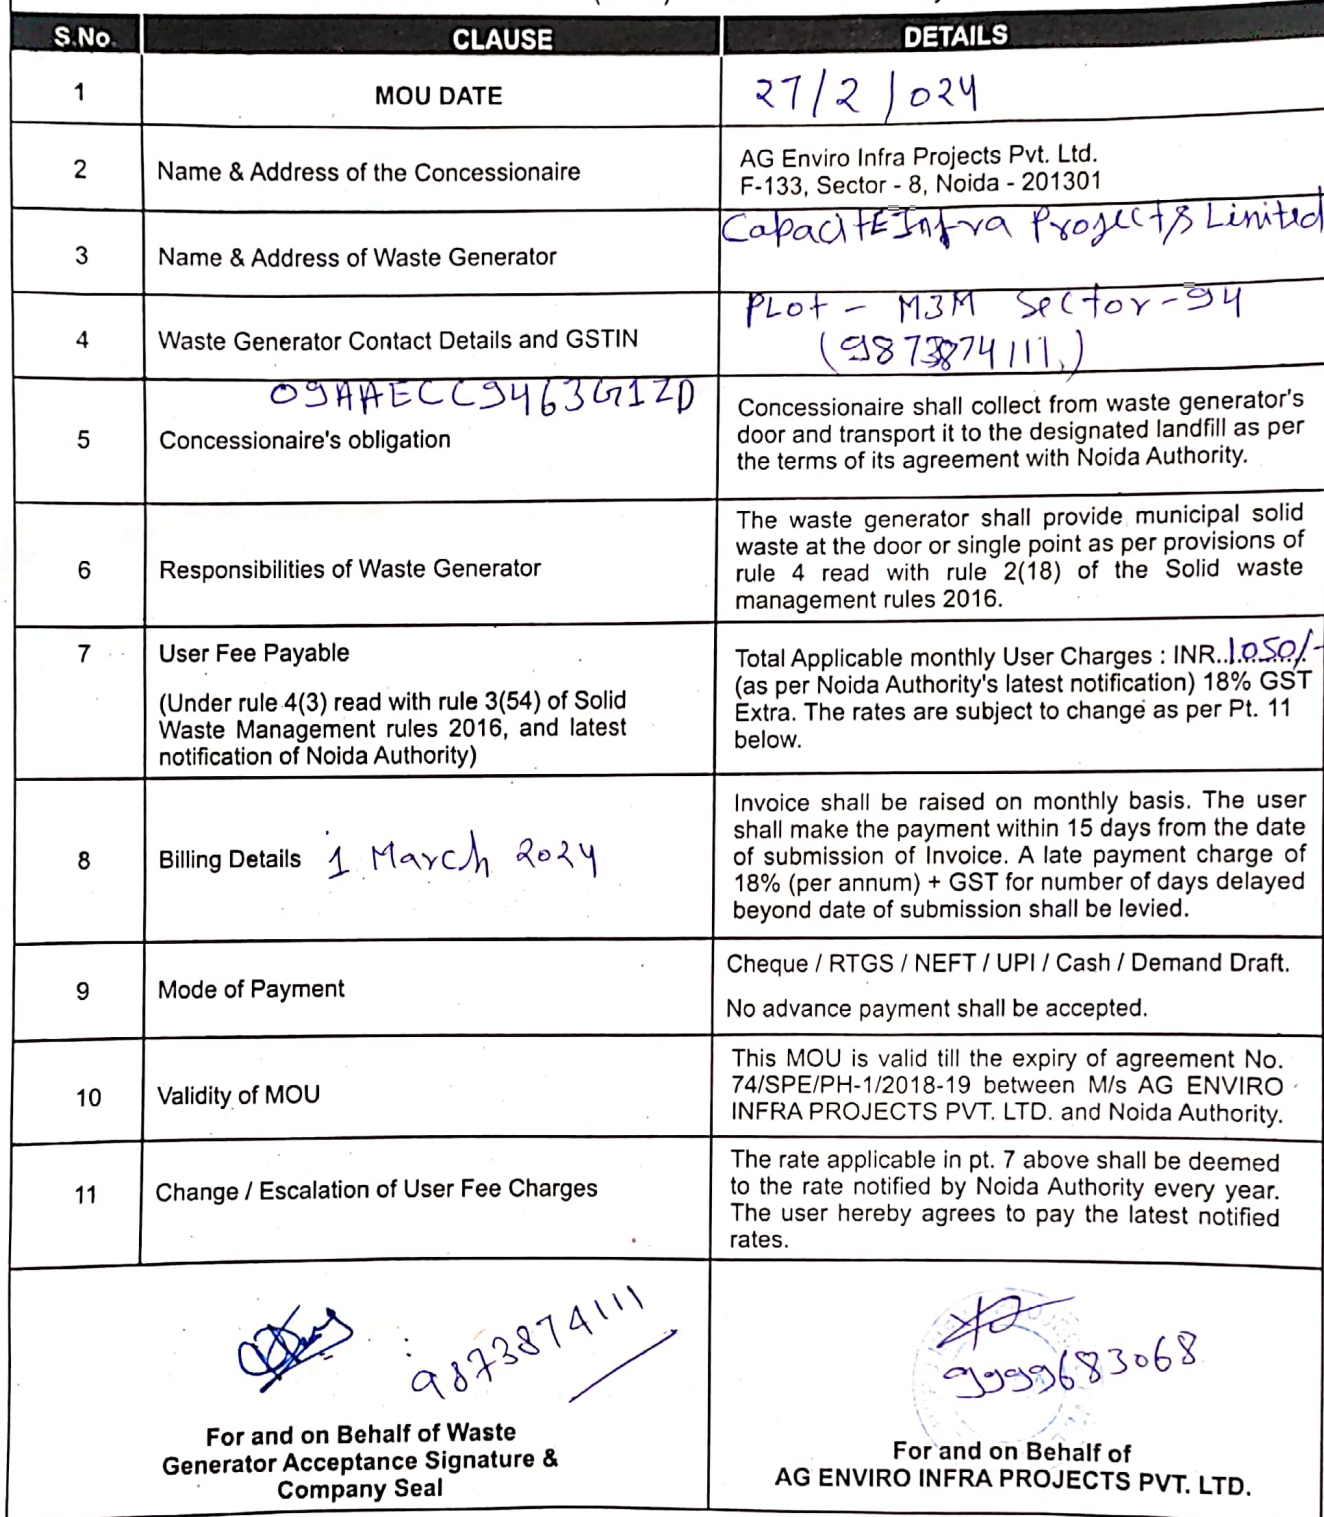 S.No. CLAUSE DETAILS
1 MOU DATE 27/2/024
2 Name & Address of the Concessionaire
AG Enviro Infra Projects Pvt. Ltd.
F-133, Sector - 8, Noida - 201301
3 Name & Address of Waste Generator
CapacitE Infra Projects Limited
4 Waste Generator Contact Details and GSTIN
PLot - M3M Sector-94
(9873874111)
09AAECC9463G1ZD
5 Concessionaire's obligation
Concessionaire shall collect from waste generator's
door and transport it to the designated landfill as per
the terms of its agreement with Noida Authority.
6 Responsibilities of Waste Generator
The waste generator shall provide municipal solid
waste at the door or single point as per provisions of
rule 4 read with rule 2(18) of the Solid waste
management rules 2016.
7 User Fee Payable
(Under rule 4(3) read with rule 3(54) of Solid
Waste Management rules 2016, and latest
notification of Noida Authority)
Total Applicable monthly User Charges : INR..1050/-
(as per Noida Authority's latest notification) 18% GST
Extra. The rates are subject to change as per Pt. 11
below.
8 Billing Details 1 March 2024
Invoice shall be raised on monthly basis. The user
shall make the payment within 15 days from the date
of submission of Invoice. A late payment charge of
18% (per annum) + GST for number of days delayed
beyond date of submission shall be levied.
9 Mode of Payment
Cheque / RTGS / NEFT / UPI / Cash / Demand Draft.
No advance payment shall be accepted.
10 Validity of MOU
This MOU is valid till the expiry of agreement No.
74/SPE/PH-1/2018-19 between M/s AG ENVIRO
INFRA PROJECTS PVT. LTD. and Noida Authority.
11 Change / Escalation of User Fee Charges
The rate applicable in pt. 7 above shall be deemed
to the rate notified by Noida Authority every year.
The user hereby agrees to pay the latest notified
rates.
9873874111
For and on Behalf of Waste
Generator Acceptance Signature &
Company Seal
9999683068
For and on Behalf of
AG ENVIRO INFRA PROJECTS PVT. LTD.